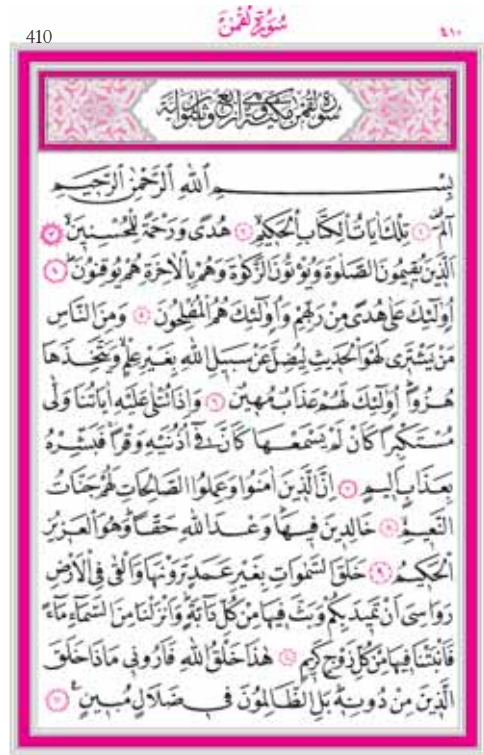 410
سُورَةُ لُقْمٰنَ
٤١٠
سورة لقمن مكية وهي اربع وثلثون اية
بِسْمِ اللهِ الرَّحْمٰنِ الرَّحِيمِ
الٓمٓ ﴿١﴾ تِلْكَ اٰيَاتُ الْكِتَابِ الْحَكِيمِ ﴿٢﴾ هُدًى وَرَحْمَةً لِلْمُحْسِنِينَ ﴿٣﴾
اَلَّذِينَ يُقِيمُونَ الصَّلٰوةَ وَيُؤْتُونَ الزَّكٰوةَ وَهُمْ بِالْاٰخِرَةِ هُمْ يُوقِنُونَ ﴿٤﴾
اُولٰٓئِكَ عَلٰى هُدًى مِنْ رَبِّهِمْ وَاُولٰٓئِكَ هُمُ الْمُفْلِحُونَ ﴿٥﴾ وَمِنَ النَّاسِ
مَنْ يَشْتَرِى لَهْوَ الْحَدِيثِ لِيُضِلَّ عَنْ سَبِيلِ اللهِ بِغَيْرِ عِلْمٍ وَيَتَّخِذَهَا
هُزُوًا اُولٰٓئِكَ لَهُمْ عَذَابٌ مُهِينٌ ﴿٦﴾ وَاِذَا تُتْلٰى عَلَيْهِ اٰيَاتُنَا وَلّٰى
مُسْتَكْبِرًا كَاَنْ لَمْ يَسْمَعْهَا كَاَنَّ فٓى اُذُنَيْهِ وَقْرًا فَبَشِّرْهُ
بِعَذَابٍ اَلِيمٍ ﴿٧﴾ اِنَّ الَّذِينَ اٰمَنُوا وَعَمِلُوا الصَّالِحَاتِ لَهُمْ جَنَّاتُ
النَّعِيمِ ﴿٨﴾ خَالِدِينَ فِيهَا وَعْدَ اللهِ حَقًّا وَهُوَ الْعَزِيزُ
الْحَكِيمُ ﴿٩﴾ خَلَقَ السَّمٰوَاتِ بِغَيْرِ عَمَدٍ تَرَوْنَهَا وَاَلْقٰى فِى الْاَرْضِ
رَوَاسِىَ اَنْ تَمِيدَ بِكُمْ وَبَثَّ فِيهَا مِنْ كُلِّ دَٓابَّةٍ وَاَنْزَلْنَا مِنَ السَّمَٓاءِ مَٓاءً
فَاَنْبَتْنَا فِيهَا مِنْ كُلِّ زَوْجٍ كَرِيمٍ ﴿١٠﴾ هٰذَا خَلْقُ اللهِ فَاَرُونِى مَاذَا خَلَقَ
الَّذِينَ مِنْ دُونِهِ بَلِ الظَّالِمُونَ فِى ضَلَالٍ مُبِينٍ ﴿١١﴾